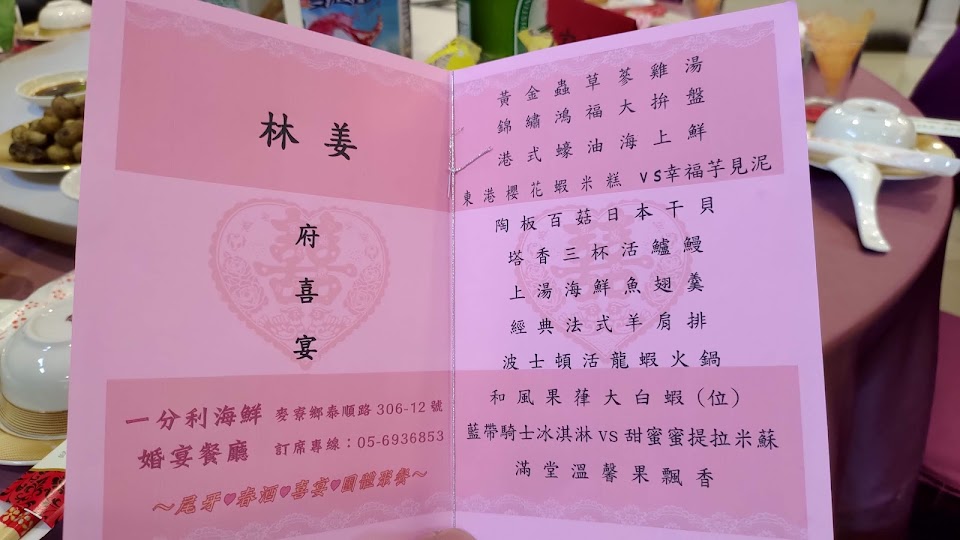 林姜
府
喜
宴
一分利海鮮
婚宴餐廳
麥寮鄉泰順路306-12號
訂席專線：05-6936853
～尾牙♥春酒♥喜宴♥團體聚餐～
黃金蟲草蔘雞湯
錦繡鴻福大拚盤
港式蠔油海上鮮
東港櫻花蝦米糕 vs幸福芋見泥
陶板百菇日本干貝
塔香三杯活鱸鰻
上湯海鮮魚翅羹
經典法式羊肩排
波士頓活龍蝦火鍋
和風果葎大白蝦(位)
藍帶騎士冰淇淋 VS 甜蜜蜜提拉米蘇
滿堂溫馨果飄香
囍
囍